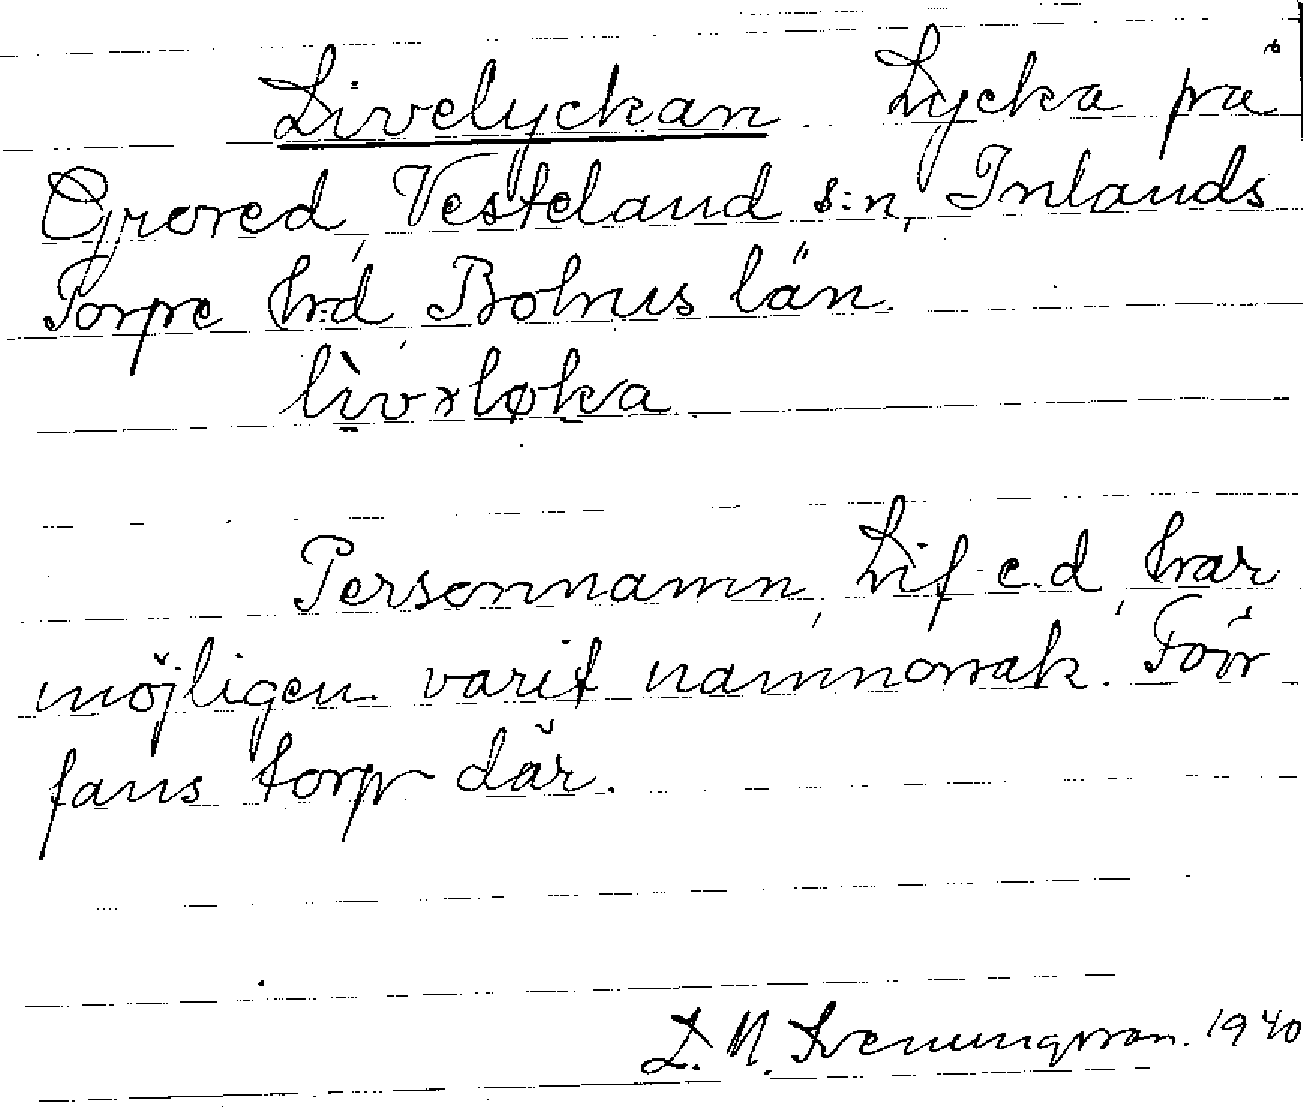 Livelyckan. Lycka på
Grored, Vesteland s:n, Inlands
Torpe hrd, Bohus län.
lìvrløka
Personnamn, Lif e.d, har
möjligen varit namnorsak. Förr
fans torp där.
L. N. Svenungsson. 1940